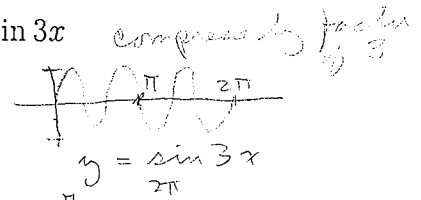 in 3x compress by factor
of 3
π 2π
y = sin 3x
2π
π